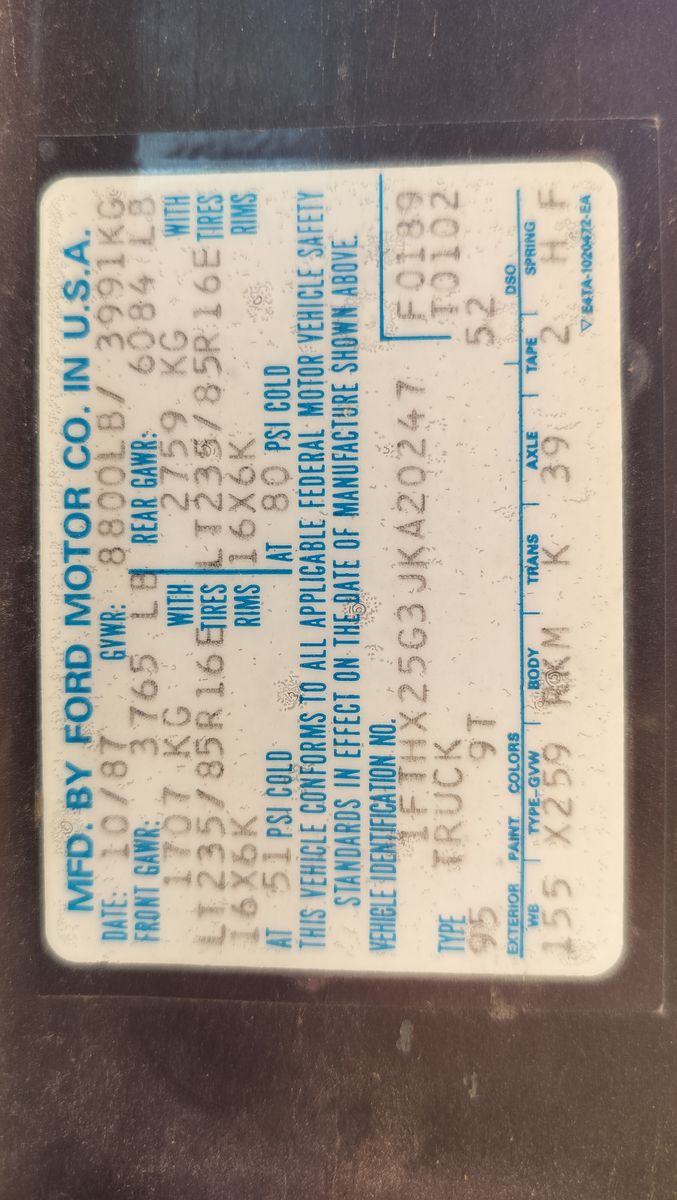 MFD. BY FORD MOTOR CO. IN U.S.A.
DATE: 10/87 GVWR: 8800LB/ 3991KG
FRONT GAWR: 3765 LB REAR GAWR: 6084 LB
1707 KG WITH 2759 KG WITH
LT235/85R16E TIRES LT235/85R16E TIRES
16X6K RIMS 16X6K RIMS
AT 51 PSI COLD AT 80 PSI COLD
THIS VEHICLE CONFORMS TO ALL APPLICABLE FEDERAL MOTOR VEHICLE SAFETY
STANDARDS IN EFFECT ON THE DATE OF MANUFACTURE SHOWN ABOVE.
VEHICLE IDENTIFICATION NO. F0189
1FTHX25G3JKA20247 T0102
TYPE TRUCK
95 9T 52
EXTERIOR PAINT COLORS DSO
WB TYPE-GVW BODY TRANS AXLE TAPE SPRING
155 X259 KM K 39 2 H F
▽ E4TA-1020472-EA